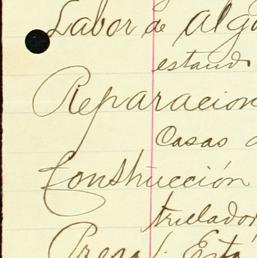 Labor de algu
estand
Reparacion
Casas d
Construcción
trillador
Prensa